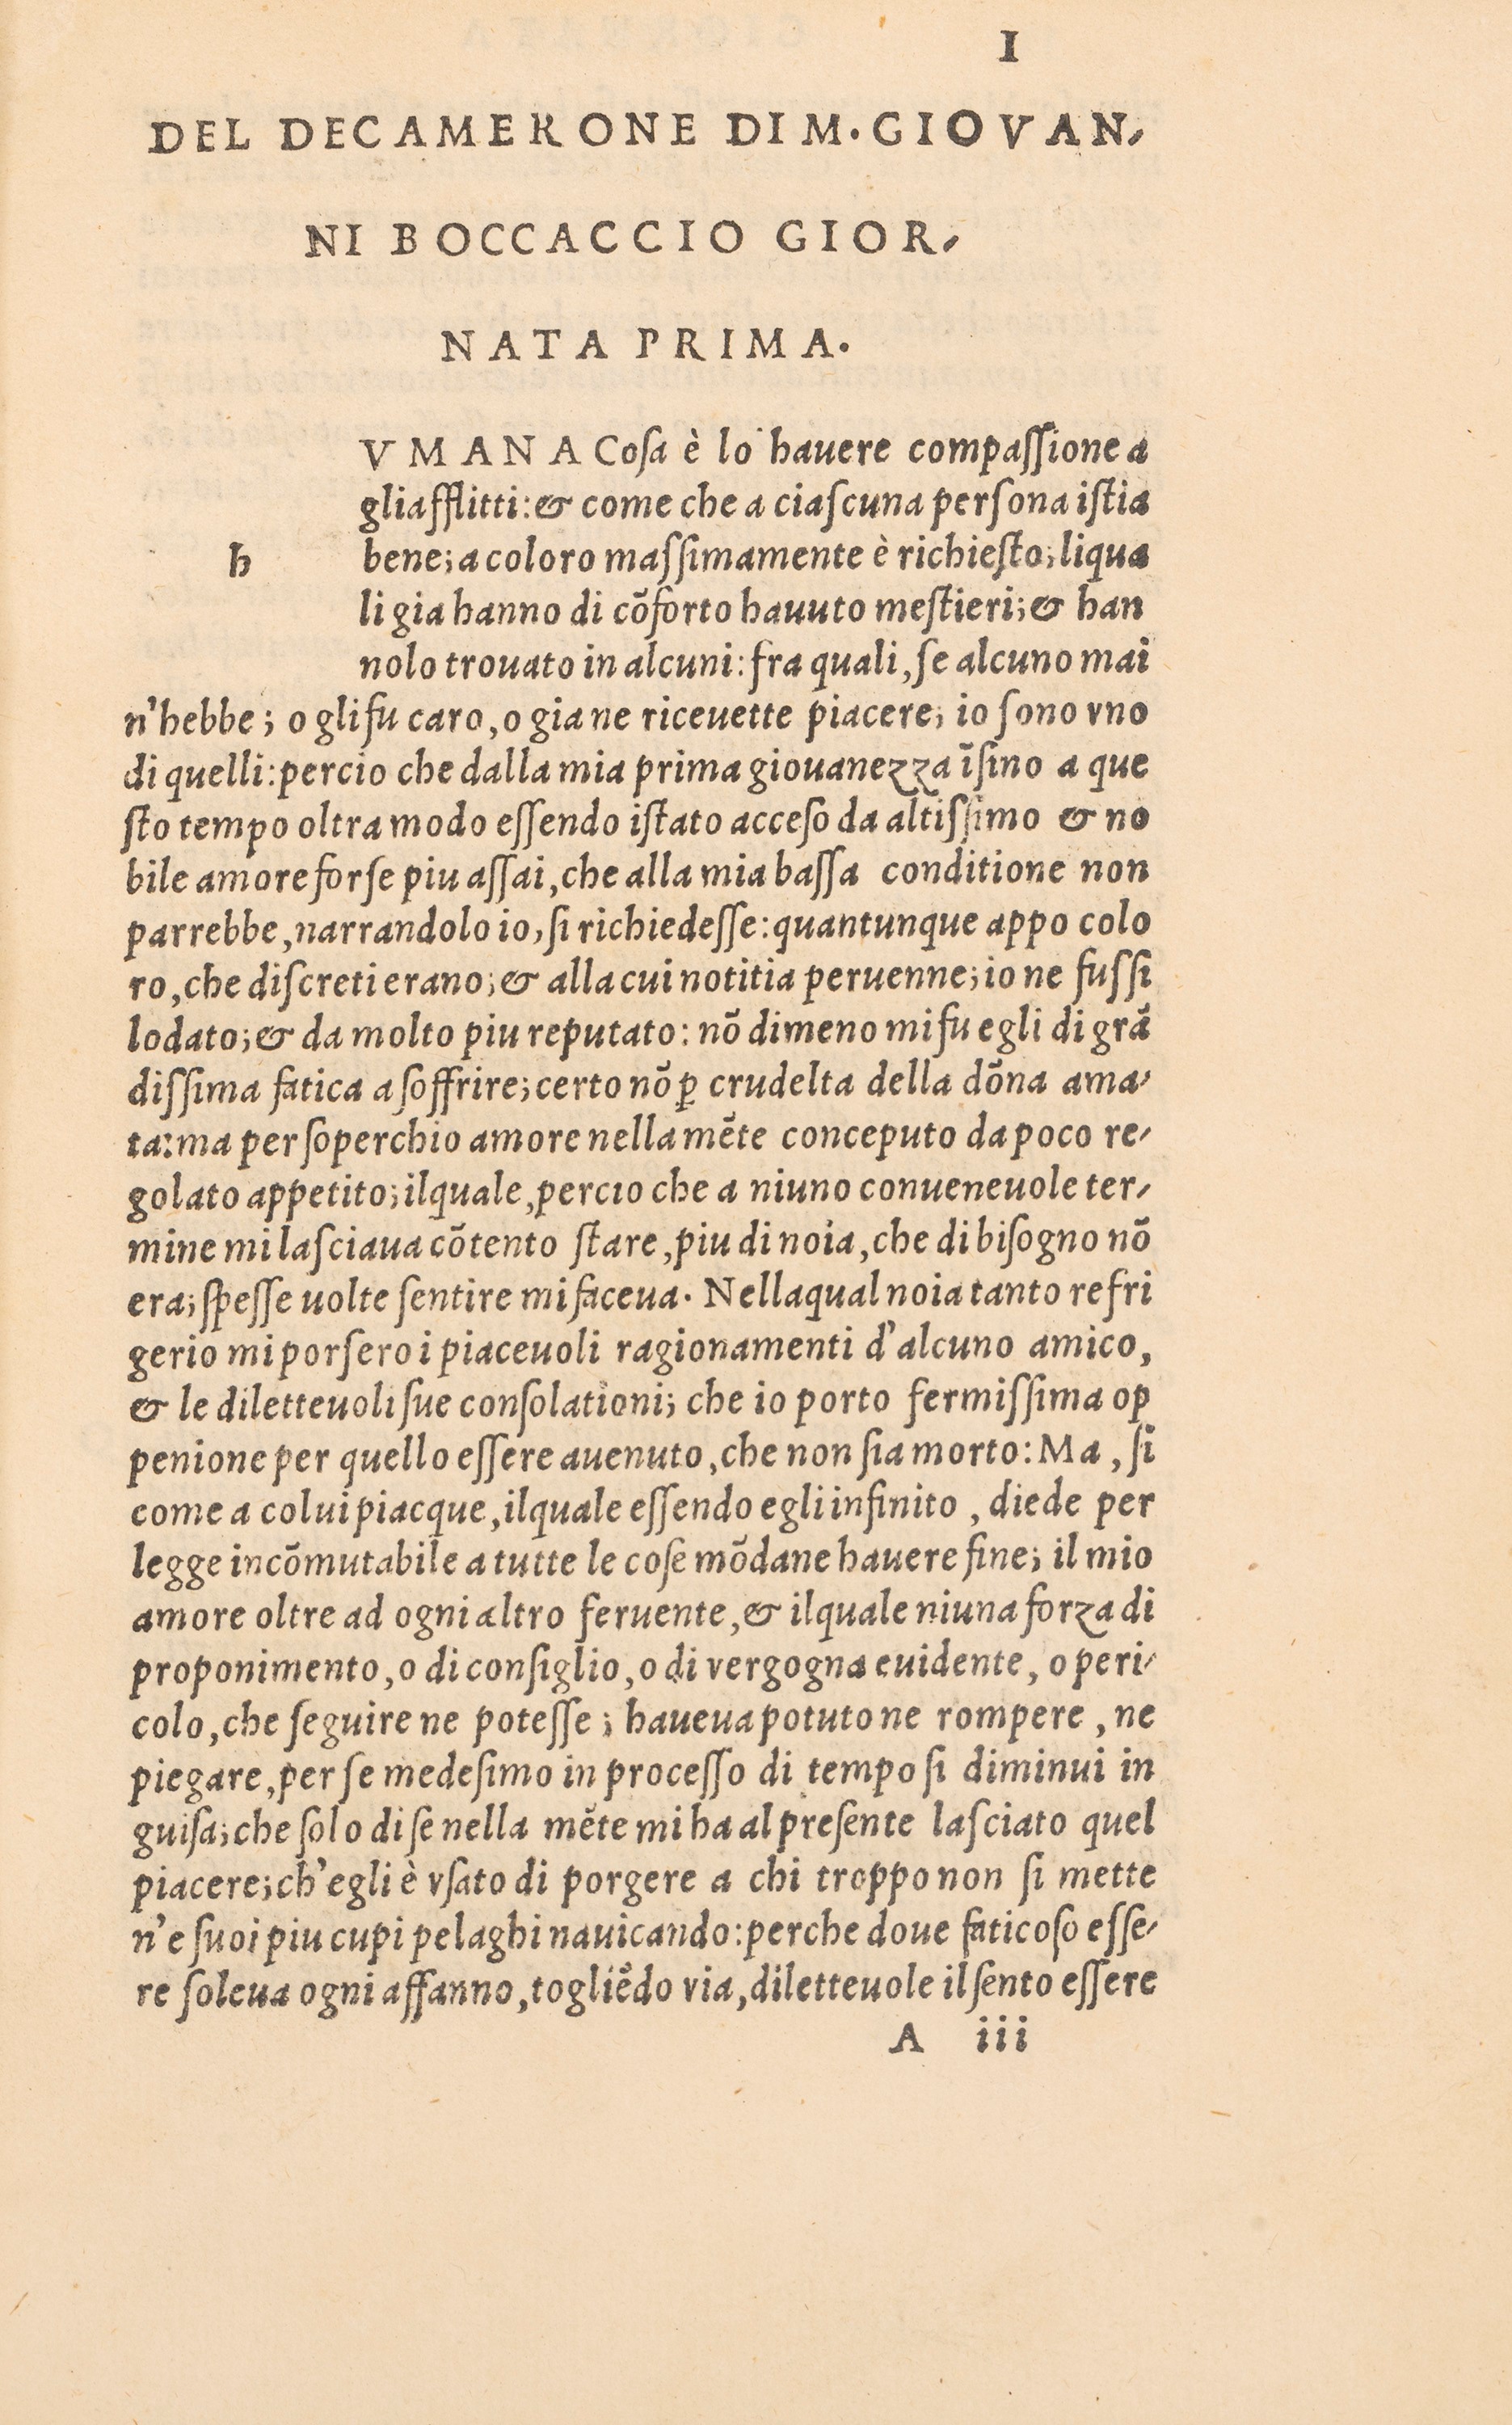 I
DEL DECAMERONE DI M. GIOVAN,
NI BOCCACCIO GIOR,
NATA PRIMA.
VMANA Coſa è lo hauere compaſſione a
gliafflitti: & come che a ciaſcuna perſona iſtia
h
bene; a coloro maſſimamente è richieſto; liqua
li gia hanno di cõforto hauuto meſtieri; & han
nolo trouato in alcuni: fra quali, ſe alcuno mai
n'hebbe; o gli fu caro, o gia ne riceuette piacere; io ſono vno
di quelli: percio che dalla mia prima giouanezza ĩſino a que
ſto tempo oltra modo eſſendo iſtato acceſo da altiſſimo & no
bile amore forſe piu aſſai, che alla mia baſſa conditione non
parrebbe, narrandolo io, ſi richiedeſſe: quantunque appo colo
ro, che diſcreti erano; & alla cui notitia peruenne; io ne fuſſi
lodato; & da molto piu reputato: nõ dimeno mi fu egli di grã
diſſima fatica a ſoffrire; certo nõ ꝑ crudelta della dõna ama,
ta: ma per ſoperchio amore nella mẽte conceputo da poco re,
golato appetito; ilquale, percio che a niuno conueneuole ter,
mine mi laſciaua cõtento ſtare, piu di noia, che di biſogno nõ
era; ſpeſſe uolte ſentire mi faceua. Nellaqual noia tanto refri
gerio mi porſero i piaceuoli ragionamenti d'alcuno amico,
& le diletteuoli ſue conſolationi; che io porto fermiſſima op
penione per quello eſſere auenuto, che non ſia morto: Ma, ſi
come a colui piacque, ilquale eſſendo egli infinito, diede per
legge incõmutabile a tutte le coſe mõdane hauere fine; il mio
amore oltre ad ogni altro feruente, & ilquale niuna forza di
proponimento, o di conſiglio, o di vergogna euidente, o peri,
colo, che ſeguire ne poteſſe; haueua potuto ne rompere, ne
piegare, per ſe medeſimo in proceſſo di tempo ſi diminui in
guiſa; che ſolo di ſe nella mẽte mi ha al preſente laſciato quel
piacere; ch'egli è vſato di porgere a chi troppo non ſi mette
n'e ſuoi piu cupi pelaghi nauicando: perche doue faticoſo eſſe,
re ſoleua ogni affanno, togliẽdo via, diletteuole il ſento eſſere
A iii